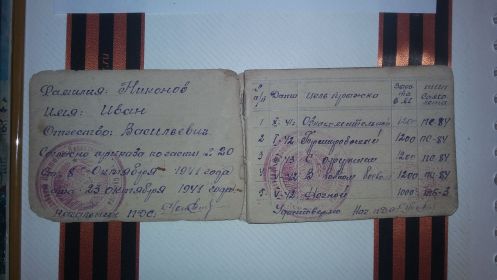 Фамилия: Никонов
Имя: Иван
Отчество: Васильевич
Согласно приказа по части № 20
от 8 Октября 1941 года
23 октября 1941 года
Начальник ПДС
№ п/п Дата Цель прыжка Высота в м. тип самолета
1 X-41 Ознакомительный 1200 ПС-84
2 Тренировочный 1200 ПС-84
3 С оружием 1200 ПС-84
4 В полном боевом 1200 ПС-84
5 Ночной 1000 ТБ-3
Удостоверяю Нач. ПДС